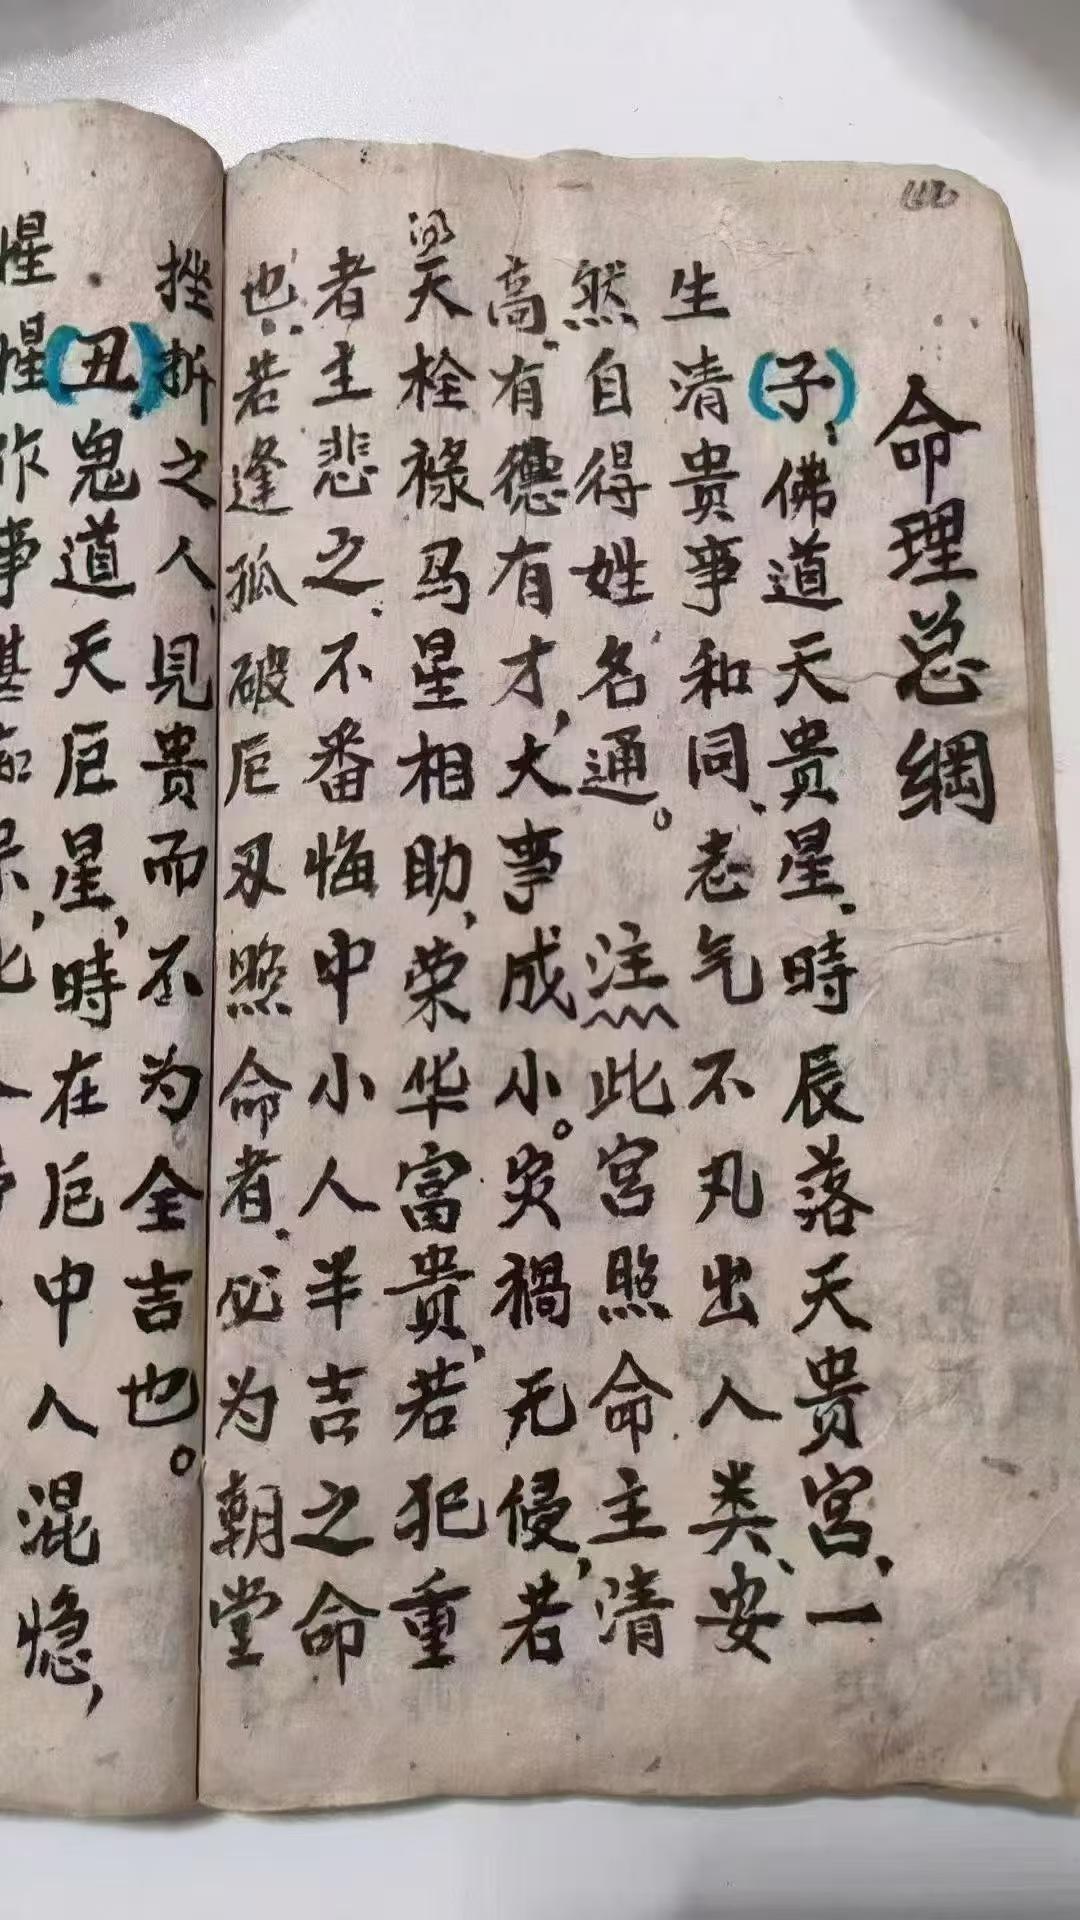 命理总綱
(子)佛道天贵星.時辰落天贵宫、一
生清贵事和同、志气不凡出人类、安
然自得姓名通。 注 此宫照命主清
高、有德有才,大事成小。灾禍无侵,若
天栓禄马星相助,荣华富贵,若犯重
者主悲之.不番悔中小人半吉之命
也.若逢孤破厄刃照命者.必为朝堂
挫折之人、見贵而不为全吉也。
(丑)鬼道天厄星,時在厄中人混惚,
惺惺作事